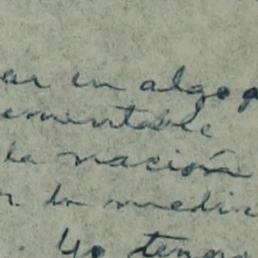 ar en algo
ementable
la nación
la medic
Yo tengo